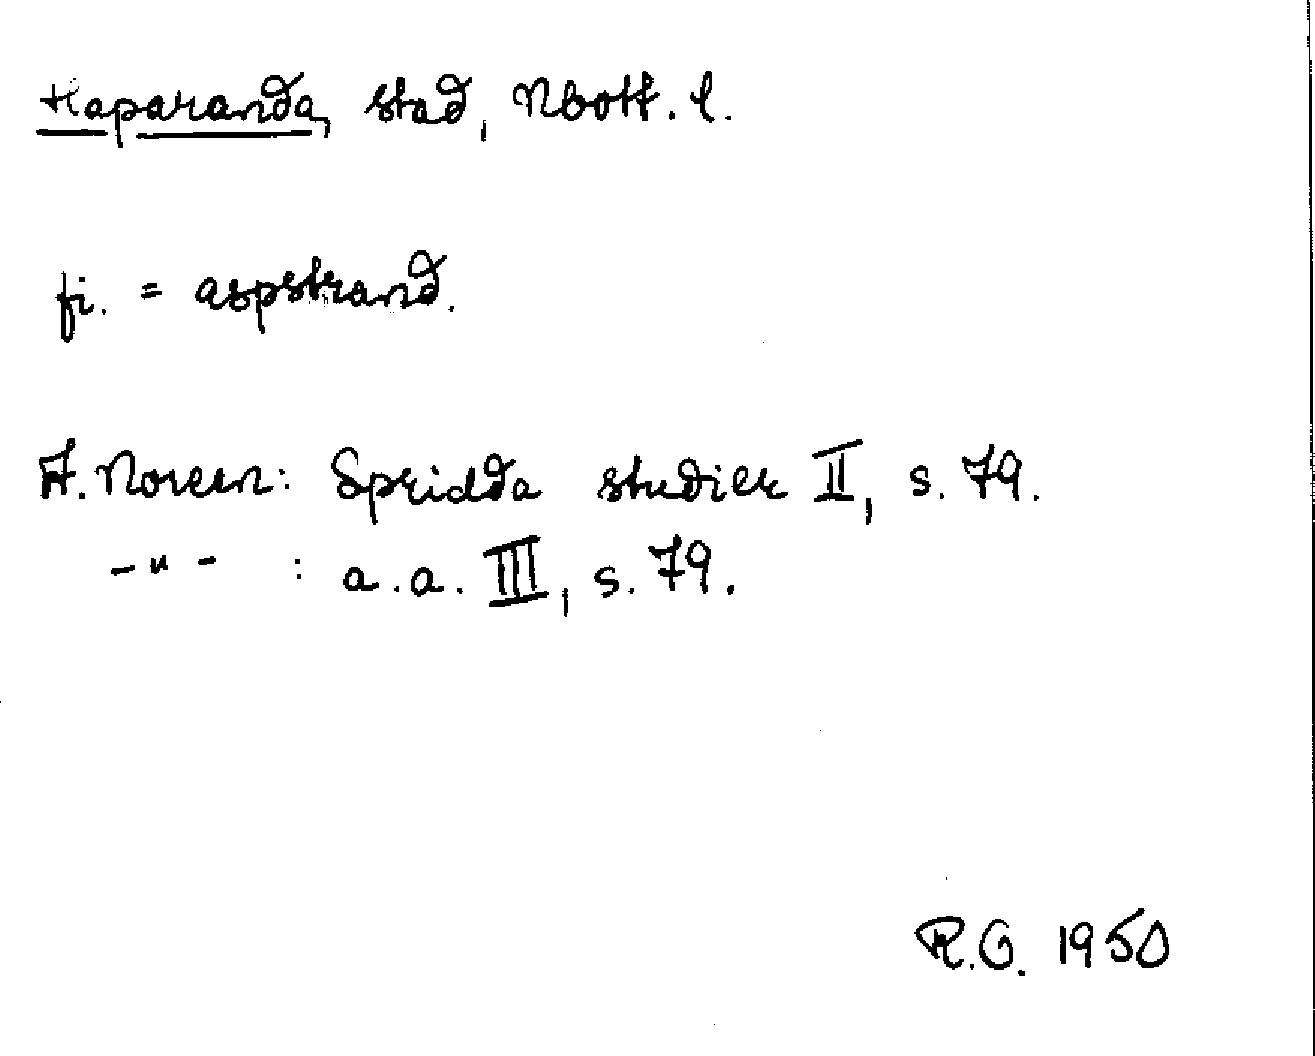 Haparanda, stad, Nbott. l.
fi. = aspstrand.
A. Noreen: Spridda studier II, s. 79.
-"- : a.a. III, s. 79.
R.G. 1950